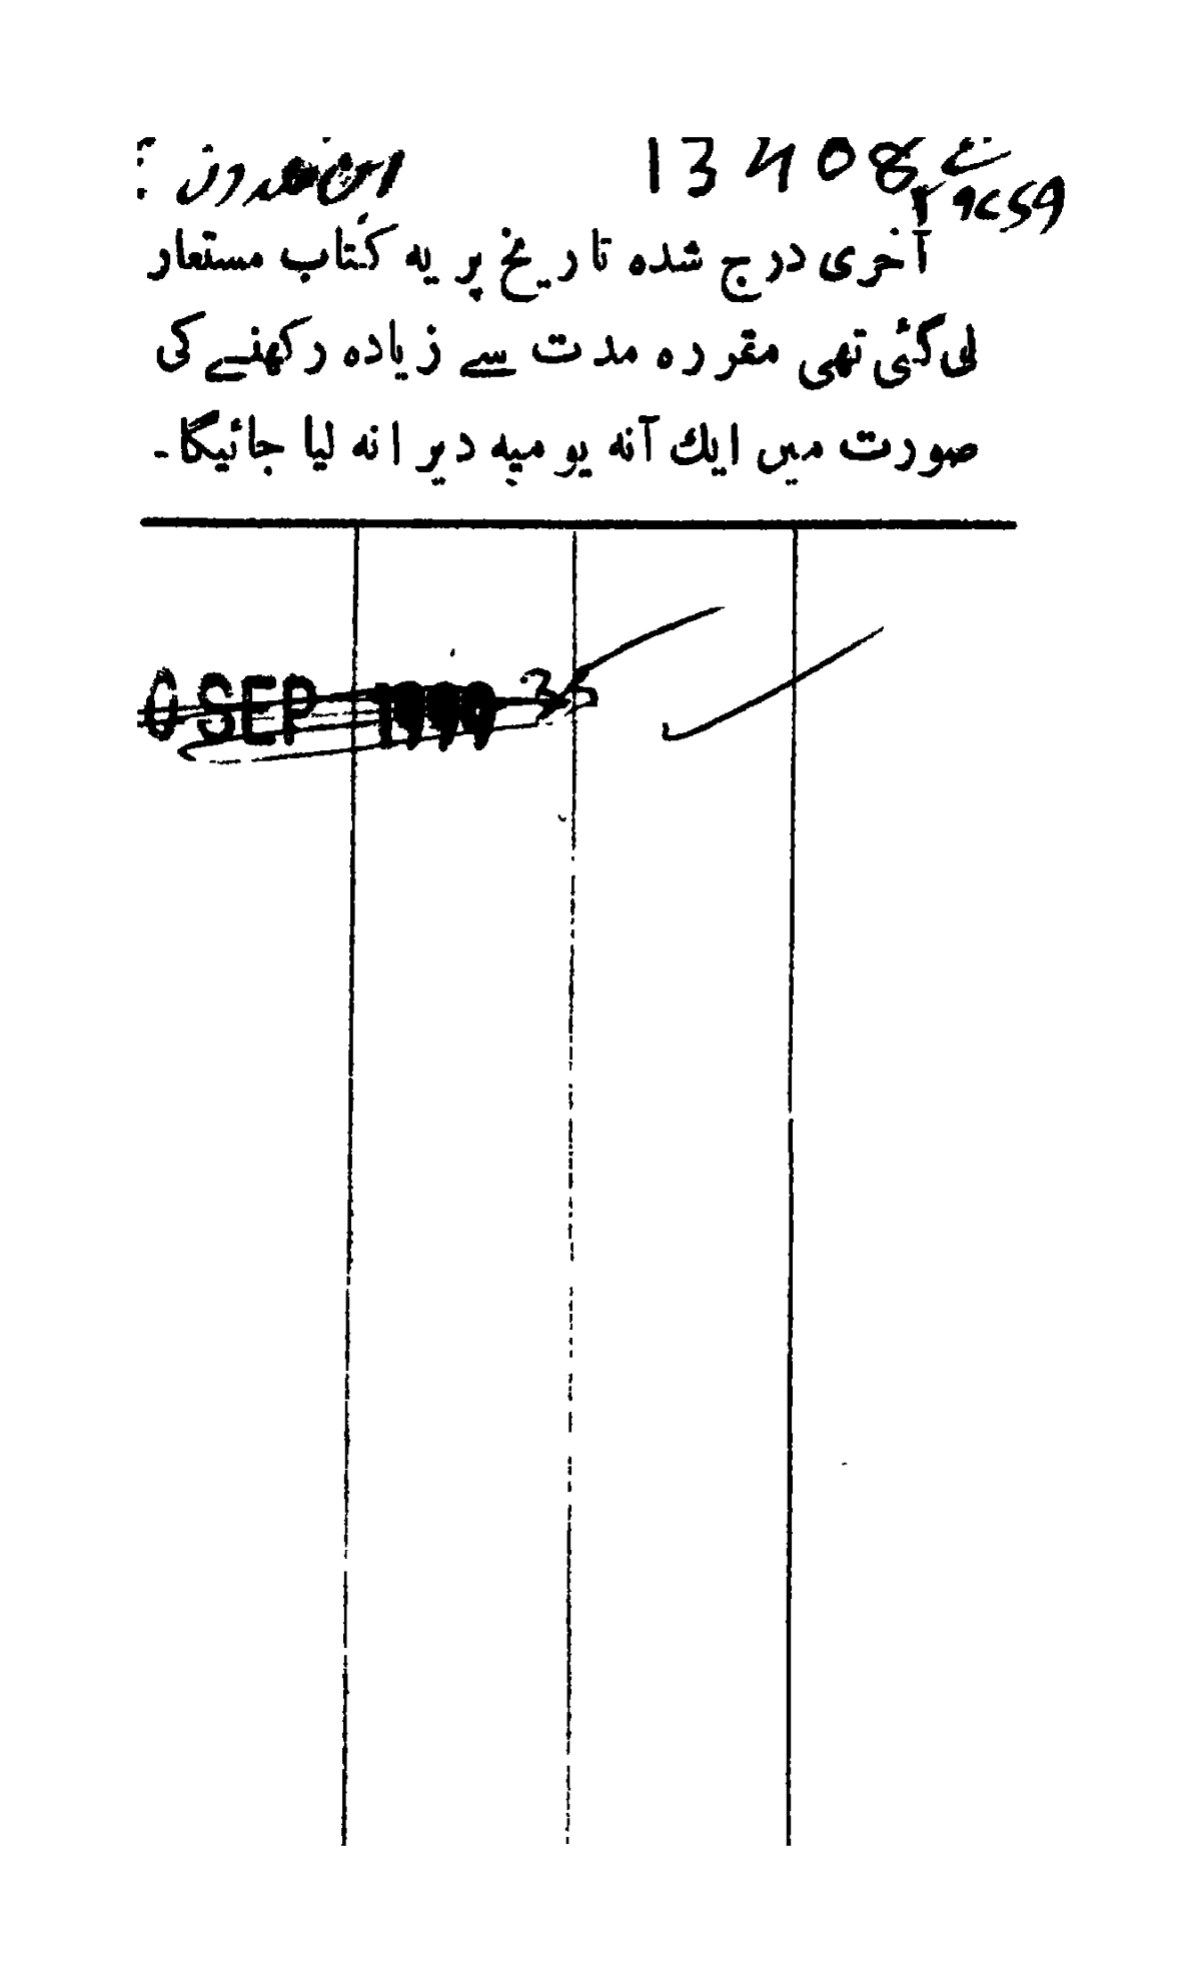 13408
ابن خلدون
آخری درج شدہ تاریخ پر یہ کتاب مستعار
لی گئی تھی مقررہ مدت سے زیادہ رکھنے کی
صورت میں ایك آنہ یومیہ دیرانہ لیا جائیگا۔
SEP